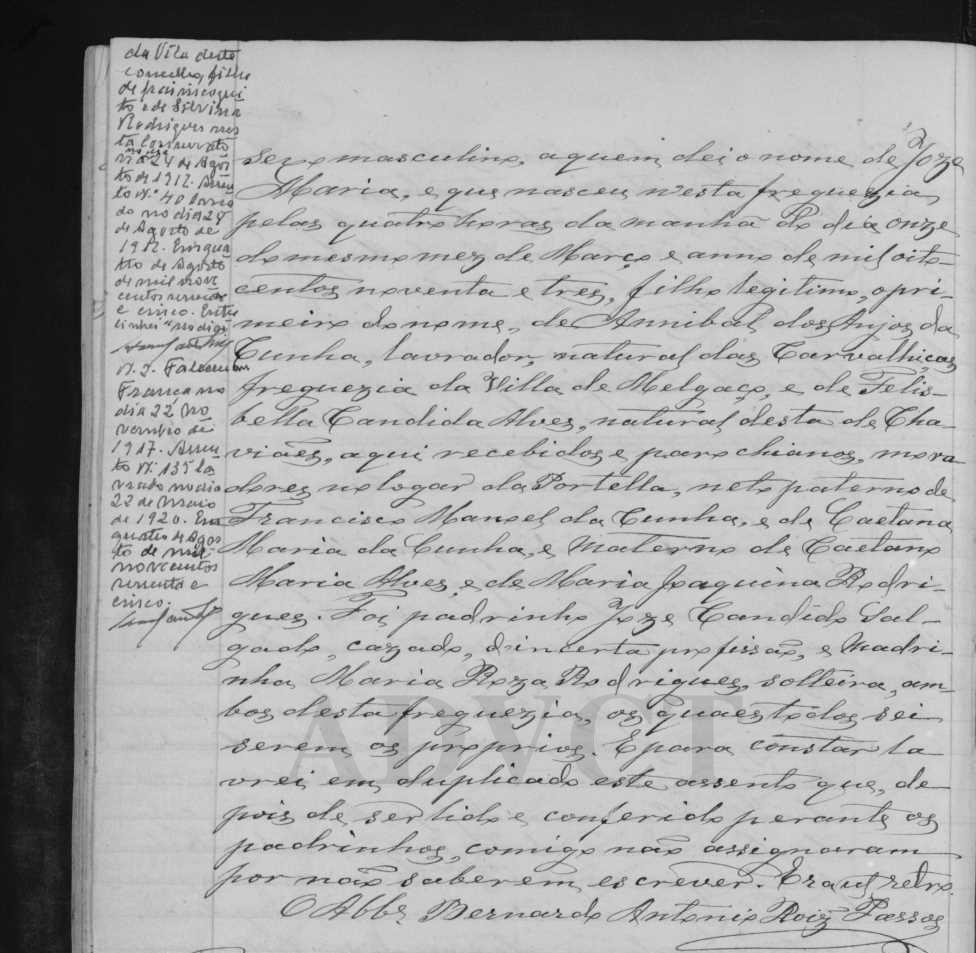 da Vila deste
concelho, filha
de pai incogni
to e de Silvina
Rodrigues nes
ta Conservató
ria
no dia 24 de Agos
to de 1912. Assen
to N.º 40 lavra
do no dia 24
de Agosto de
1912. Em qua
tro de Agosto
de mil nove
centos vinte
e cinco. Entre
linhei "no dia"
N. 2. Faleceu em
França no
dia 22 No
vembro de
1917. Assen
to N.º 135 la
vrado no dia
22 de Maio
de 1920. Em
quatro de Agos
to de mil
novecentos
vinte e
cinco.
sexo masculino, a quem dei o nome de Joze
Maria, e que nasceu n'esta freguezia
pelas quatro horas da manhã do dia onze
do mesmo mez de Março e anno de mil oito-
centos noventa e tres, filho legitimo, o pri-
meiro do nome, de Annibal dos Anjos da
Cunha, lavrador, natural das Carvalhiças
freguezia da Villa de Melgaço, e de Felis-
bella Candida Alves, natural desta de Cha-
viães, aqui recebidos e parochianos, mora-
dores no logar da Portella, neto paterno de
Francisco Manoel da Cunha, e de Caetana
Maria da Cunha, e materno de Caetano
Maria Alves, e de Maria Joaquina Rodri-
gues. Foi padrinho Joze Candido Sal-
gado, cazado, d'incerta profissão, e Madri-
nha Maria Roza Rodrigues, solteira, am-
bos desta freguezia, os quaes todos sei
serem os proprios. E para constar la-
vrei em duplicado este assento que, de-
pois de ser lido e conferido perante os
padrinhos, comigo não assignaram
por não saberem escrever. Era ut retro.
O Abb.e Bernardo Antonio Roiz Passos
ADVCT